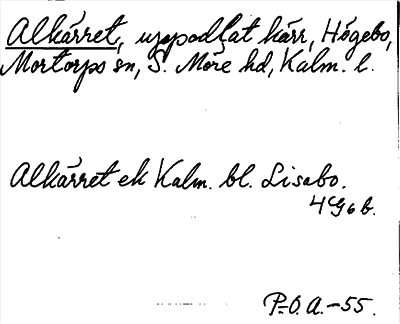 Alkärret, uppodlat kärr, Högebo,
Mortorps sn, S. Möre hd, Kalm. l.
Alkärret ek Kalm. bl. Lisabo.
P.-O. A.-55.